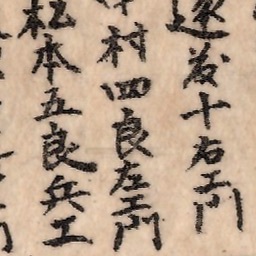 遠藤十右エ門
中村四良左エ門
松本五良兵エ